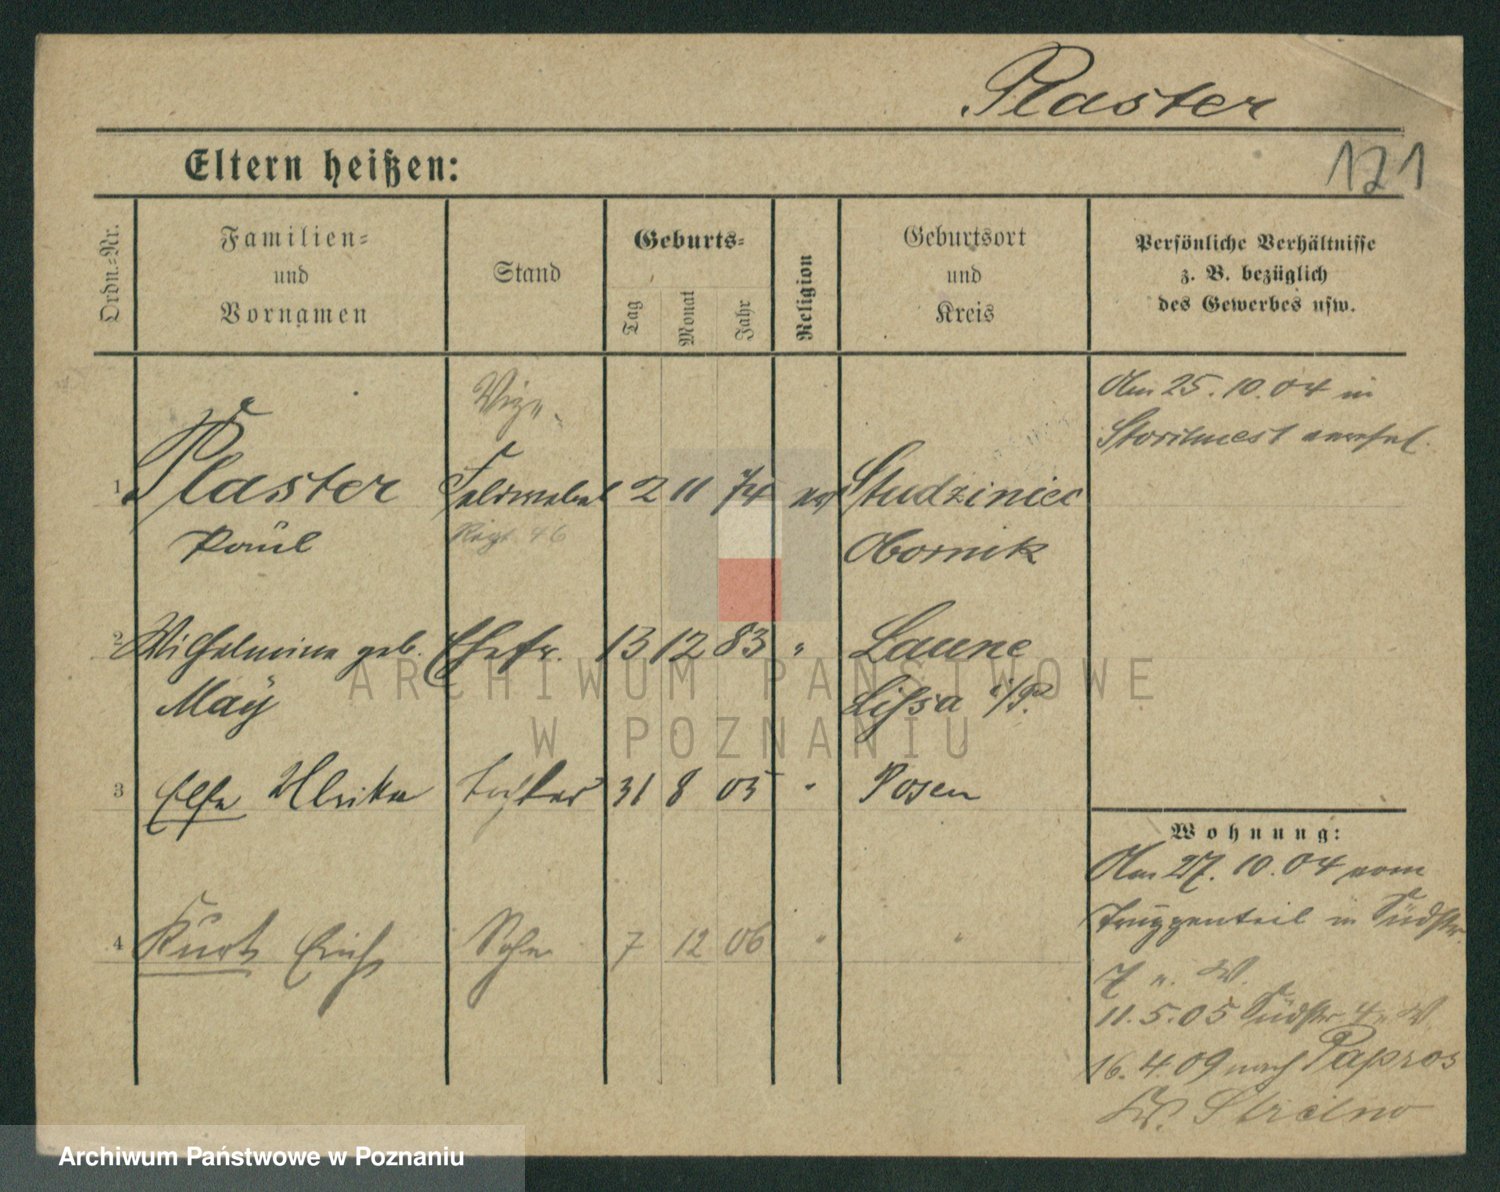 Plaster
121
Eltern heißen:
Ordn.-Nr.
Familien-
und
Vornamen
Stand
Geburts-
Tag
Monat
Jahr
Religion
Geburtsort
und
Kreis
Persönliche Verhältnisse
z. B. bezüglich
des Gewerbes usw.
Am 25.10.04 in
Storchnest
Vize-
1 Plaster Feldwebel 2 11 74 ev Studziniec
Paul Regt. 46 Obornik
2 Wilhelmine geb. Ehefr. 13 12 83 " Laune
May Lissa i/P.
3 Else Ulrika Tochter 31 8 05 " Posen
4 Kurt Erich Sohn 7 12 06 " "
Wohnung:
Am 27.10.04 vom
Truppenteil in Südstr.
7 W.
11.5.05 Südstr 4 W.
16.4.09 nach Papros
Kr. Strelno
ARCHIWUM PAŃSTWOWE
W POZNANIU
Archiwum Państwowe w Poznaniu